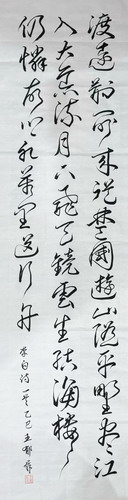 渡遠荊門外来從楚國遊山隨平野盡江
入大荒流月下飛天鏡雲生結海樓
仍憐故鄉水萬里送行舟
李白詩一首乙巳